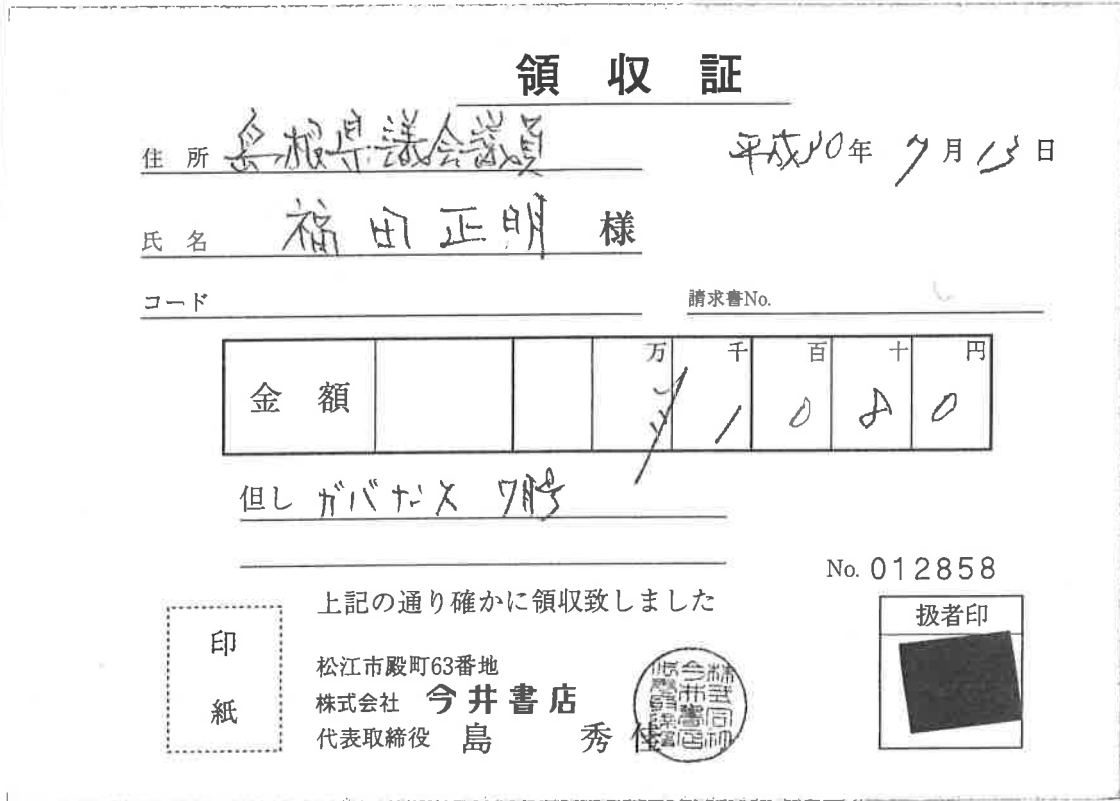 領収証
住所 島根県議会議員
平成30年 7月13日
氏名 福田正明 様
コード
請求書No.
金額 万 千 百 十 円
1080
但し ガバナンス 7月号
No. 012858
上記の通り確かに領収致しました
印紙
扱者印
松江市殿町63番地
株式会社 今井書店
代表取締役 島 秀佳